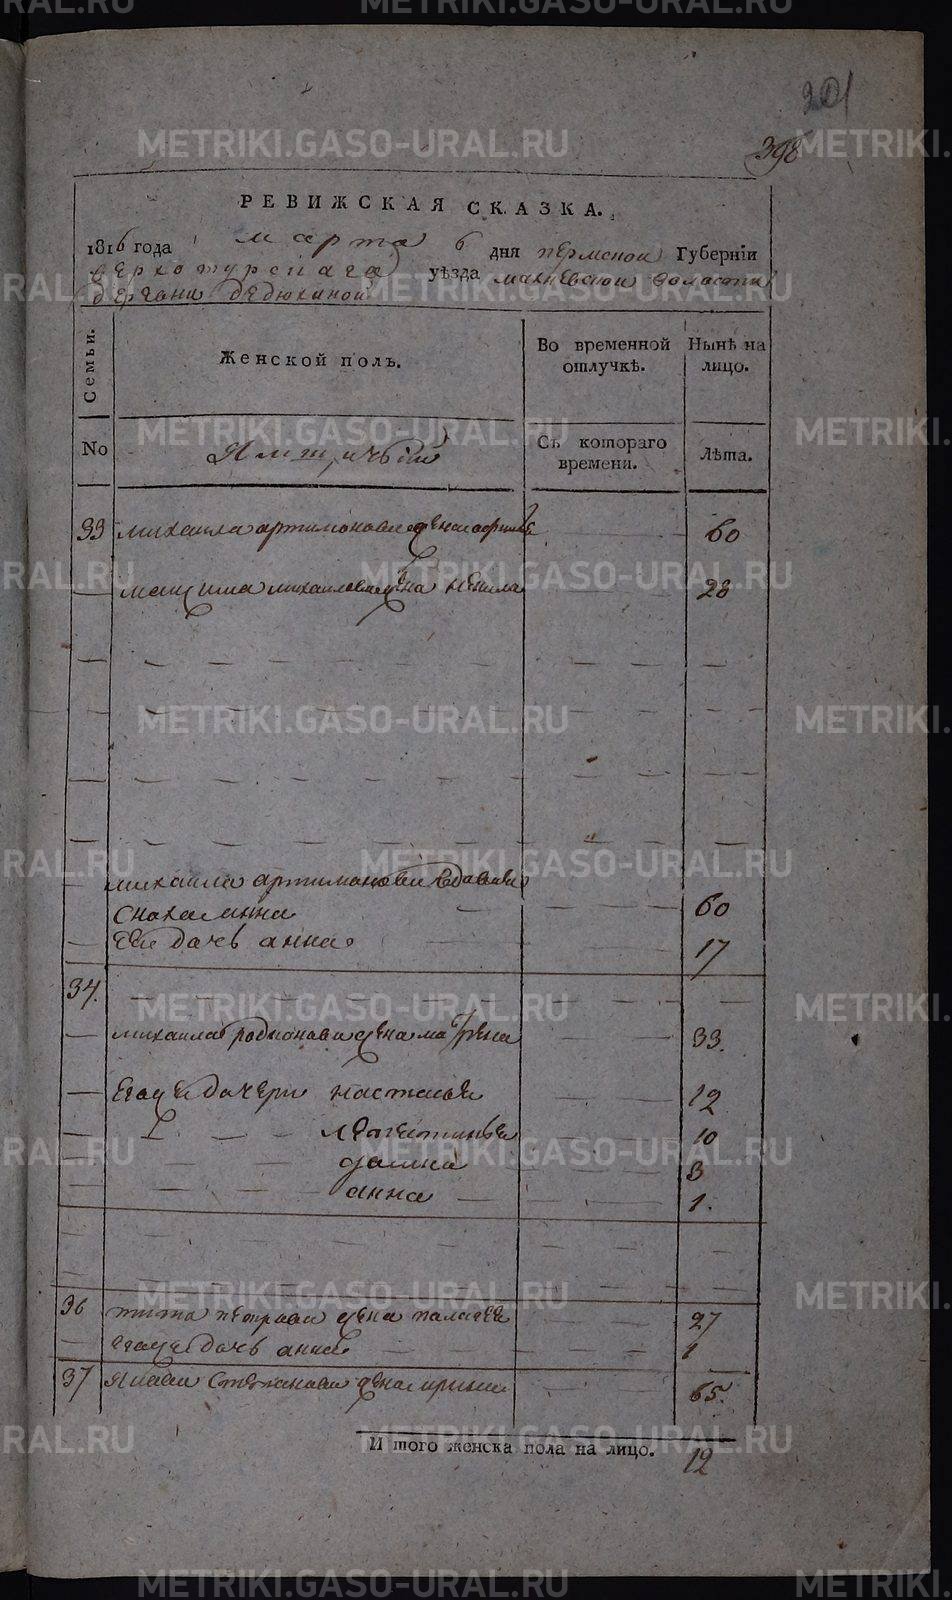 201
398
РЕВИЖСКАЯ СКАЗКА.
1816 года марта 6 дня пермской Губерніи
верхотурскаго уѣзда махневской волости
деревни дедюхиной
Семьи.
Женской полъ.
Во временной отлучкѣ.
Нынѣ на лицо.
No
Ямщичьей
Съ котораго времени.
Лѣта.
33 михаила артимонова жена 60
максима михаилова жена ненила 28
михаила артимонова
сноха анна 60
Ее дочь анна 17
34.
михаила родионова жена матрена 33.
Егоже дочери настасья 12
10
3
анна 1.
36 тита петрова жена палагея 27
егоже дочь анна 1
37 Якова степанова жена ирина 65.
И того женска пола на лицо. 12
METRIKI.GASO-URAL.RU